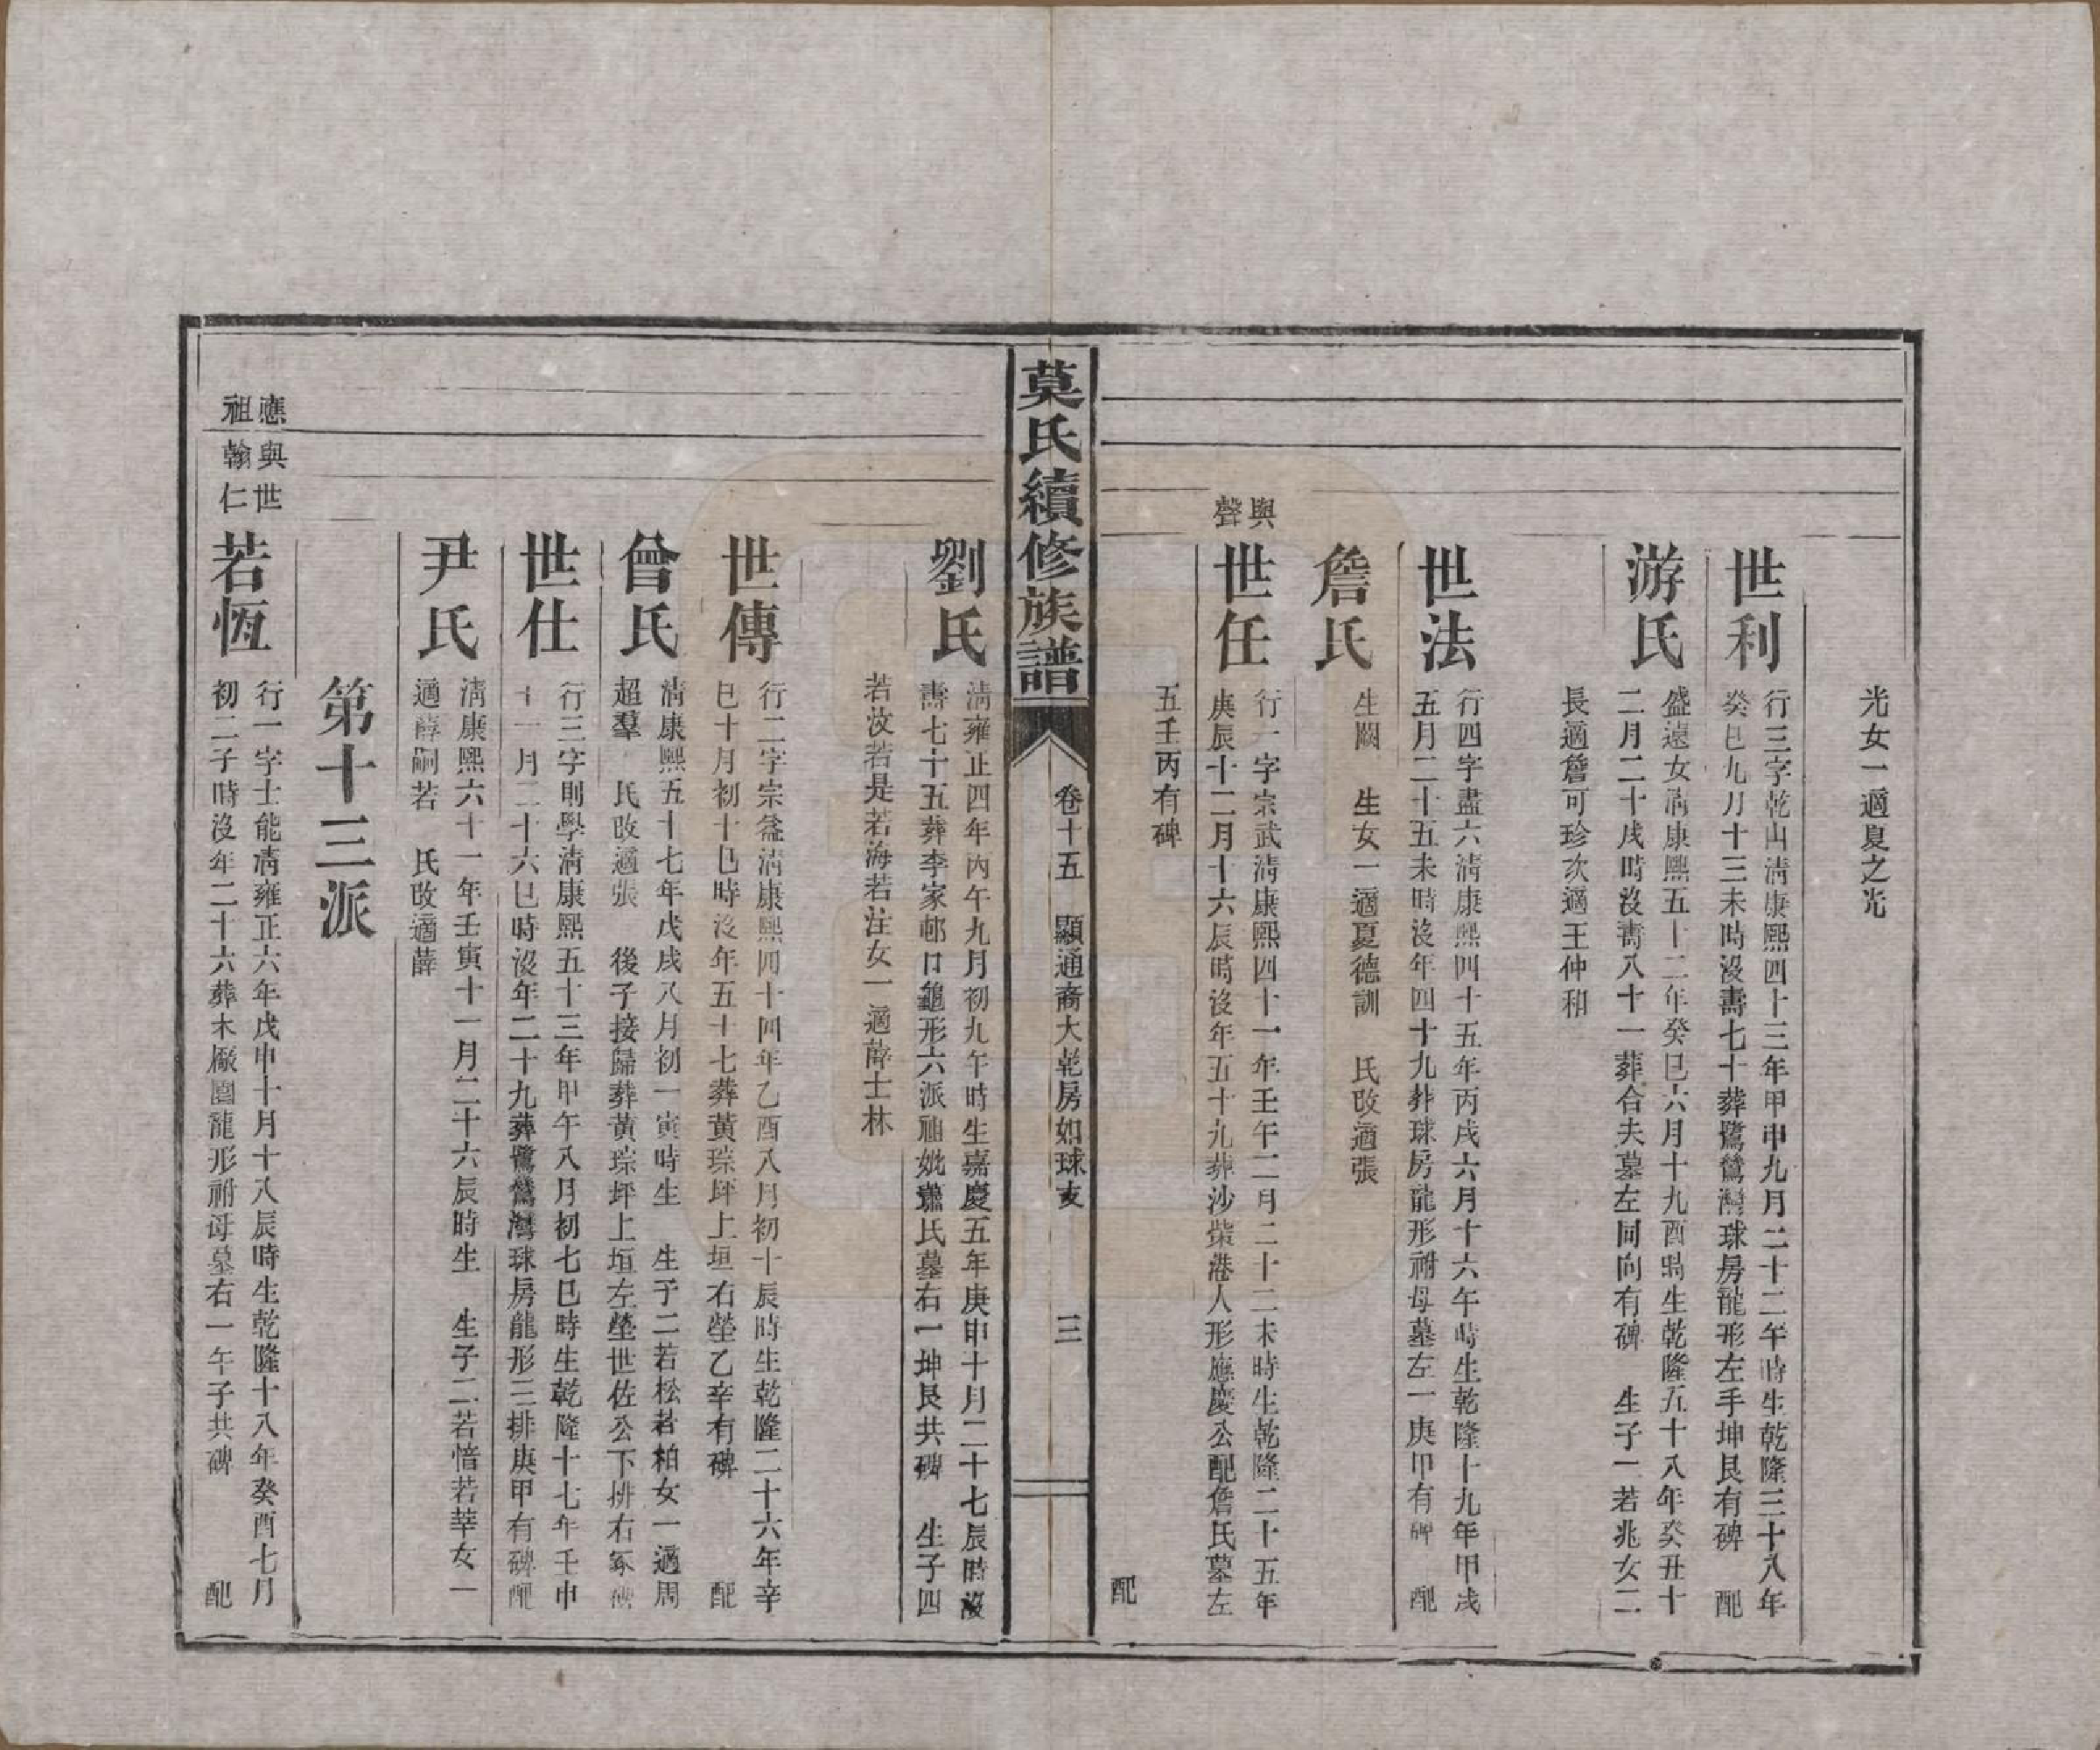 光女一適夏之光
世利
行三字乾山清康熙四十三年甲申九月二十二午時生乾隆三十八年
癸巳九月十三未時沒壽七十葬鷺鶿灣球房龍形左手坤艮有碑　配
游氏
盛遠女清康熙五十二年癸巳六月十九酉時生乾隆五十八年癸丑十
二月二十戌時沒壽八十一葬合夫墓左同向有碑　生子一若兆女二
長適詹可珍次適王仲和
世法
行四字盡六清康熙四十五年丙戌六月十六午時生乾隆十九年甲戌
五月二十五未時沒年四十九葬球房龍形祔母墓左一庚甲有碑　配
詹氏
生闕　生女一適夏德訓　氏改適張
與聲
世任
行一字宗武清康熙四十一年壬午二月二十二未時生乾隆二十五年
庚辰十二月十六辰時沒年五十九葬沙柴港人形應慶公配詹氏墓左
五壬丙有碑　配
莫氏續修族譜
卷十五　顯通裔大乾房如球支　三
劉氏
清雍正四年丙午九月初九午時生嘉慶五年庚申十月二十七辰時沒
壽七十五葬李家邨口龜形六派祖妣蕭氏墓右一坤艮共碑　生子四
若汝若是若海若注女一適薛士林
世傳
行二字宗益清康熙四十四年乙酉八月初十辰時生乾隆二十六年辛
巳十月初十巳時沒年五十七葬黃琮坪上垣右塋乙辛有碑　配
曾氏
清康熙五十七年戊戌八月初一寅時生　生子二若松若柏女一適周
超羣　氏改適張　後子接歸葬黃琮坪上垣左塋世佐公下排右冢碑
世仕
行三字則學清康熙五十三年甲午八月初七巳時生乾隆十七年壬申
十一月二十六巳時沒年二十九葬鷺鶿灣球房龍形三排庚甲有碑配
尹氏
清康熙六十一年壬寅十一月二十六辰時生　生子二若愔若莘女一
適薛嗣若　氏改適薛
第十三派
應與世
祖翰仁
若恆
行一字士能清雍正六年戊申十月十八辰時生乾隆十八年癸酉七月
初二子時沒年二十六葬木廠園龍形祔母墓右一午子共碑　配